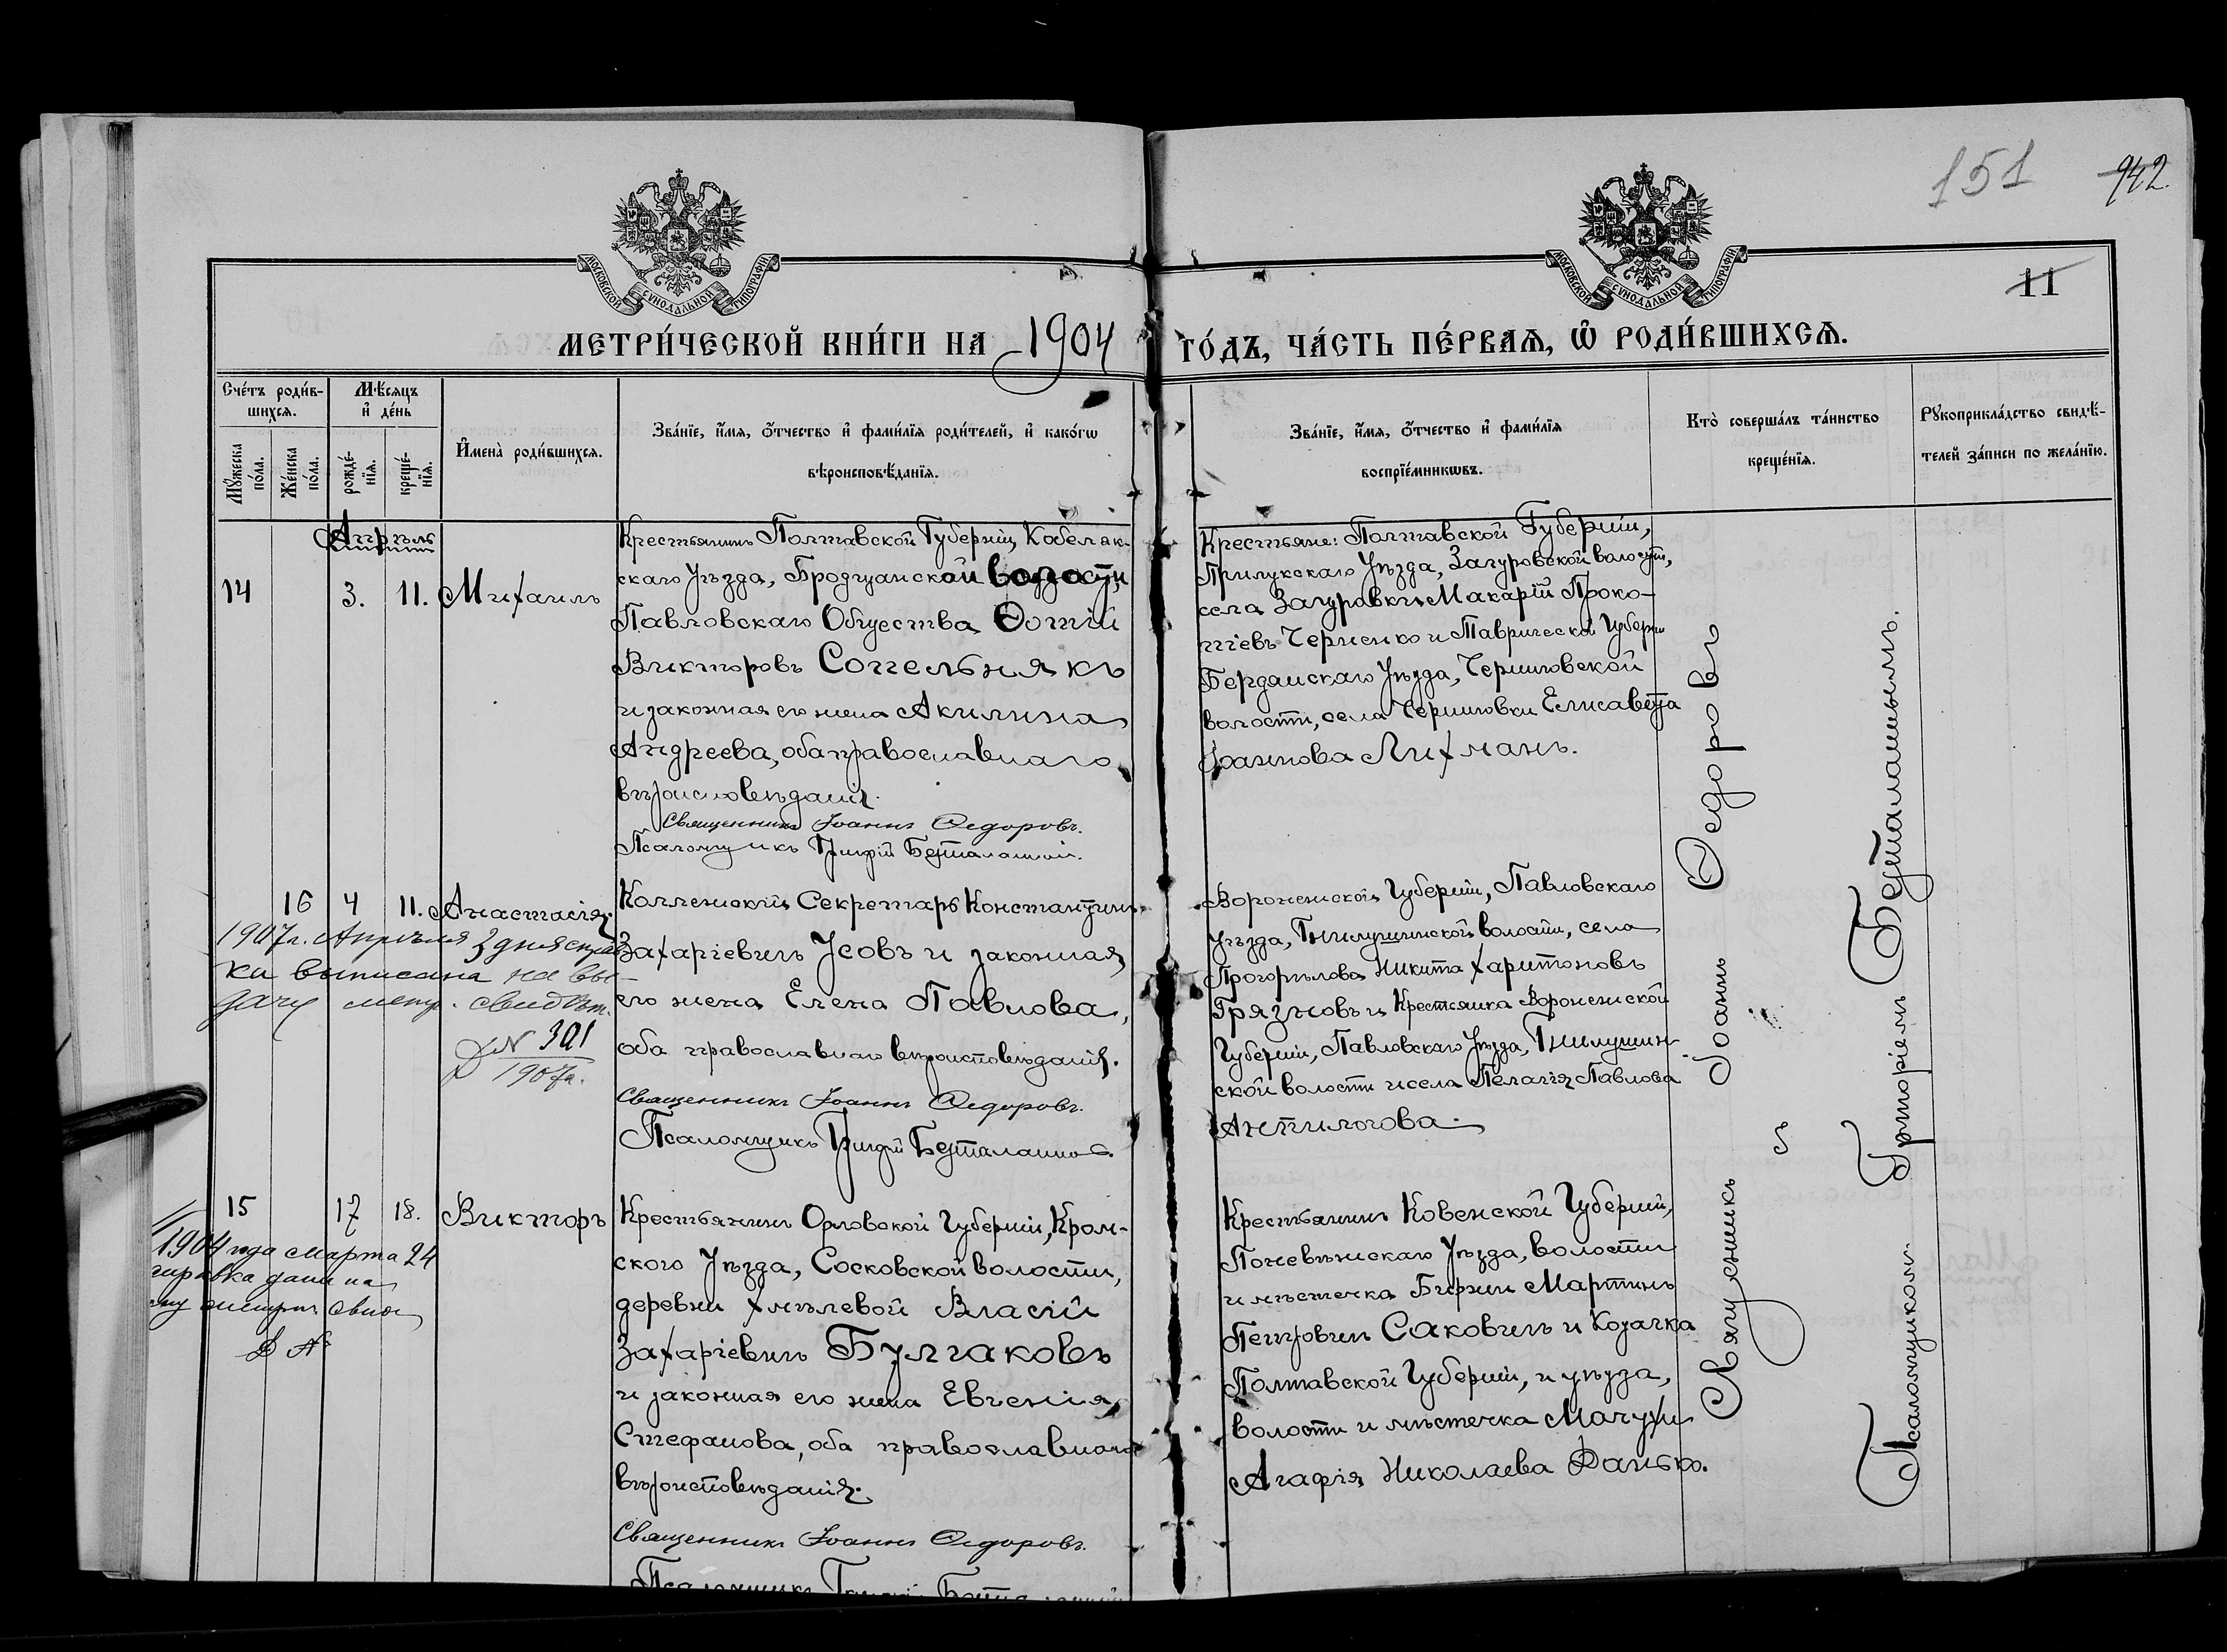 151 942.
МОСКОВСКОЙ СѴНОДАЛЬНОЙ ТИПОГРАФІИ
МОСКОВСКОЙ СѴНОДАЛЬНОЙ ТИПОГРАФІИ
11
МЕТРИ́ЧЕСКОЙ КНИ́ГИ НА 1904 ГО́ДЪ, ЧА́СТЬ ПЕ́РВАѦ, Ѡ҆ РОДИ́ВШИХСѦ.
Сче́тъ роди́в-
шихсѧ.
Мꙋ́жеска
по́ла.
Же́нска
по́ла.
Мѣ́сѧцъ
и҆ де́нь
рожде́-
нїѧ.
креще́-
нїѧ.
И҆мена̀ роди́вшихсѧ.
Зва́нїе, и҆́мѧ, ѻ҆́тчество и҆ фами́лїѧ роди́телей, и҆ како́гѡ
вѣроисповѣ́данїѧ.
Зва́нїе, и҆́мѧ, ѻ҆́тчество и҆ фами́лїѧ
воспрїе́мникѡвъ.
Кто̀ соверша́лъ та́инство
креще́нїѧ.
Рꙋкоприкла́дство свидѣ́-
телей за́писи по жела́нїю.
Апрѣль
14 3. 11. Михаилъ
Крестьянинъ Полтавской Губерніи, Кобеляк-
скаго Уѣзда, Бродщанской волости,
Павловскаго Общества Ѳотій
Викторовъ Сопельнякъ
и законная его жена Акилина
Андреева, оба православнаго
вѣроисповѣданія.
Священникъ Іоаннъ Ѳедоровъ.
Псаломщикъ Григорій Безталанный.
Крестьяне: Полтавской Губерніи,
Прилукскаго Уѣзда, Згуровской волости,
села Згуровки Макарій Проко-
піевъ Черненко и Таврической Губерніи
Бердянскаго Уѣзда, Черниговской
волости, села Черниговки Елисавета
Іоаннова Лихманъ.
16 4 11. Анастасія.
1907 г. Апрѣля 3 дня справ-
ка выписана на вы-
дачу метр. свидѣт.
Д № 301
1907 г.
Коллежскій Секретарь Константинъ
Захаріевичъ Усовъ и законная
его жена Елена Павлова,
оба православнаго вѣроисповѣданія.
Священникъ Іоаннъ Ѳедоровъ.
Псаломщикъ Григорій Безталанный.
Воронежской Губерніи, Павловскаго
Уѣзда, Гнилушинской волости, села
Прогорѣлова Никита Харитоновъ
Грязновъ и Крестьянка Воронежской
Губерніи, Павловскаго Уѣзда, Гнилушин-
ской волости и села Пелагія Павлова
Антилогова.
15 17 18. Викторъ
1904 года марта 24
справка дана на
Д №
Крестьянинъ Орловской Губерніи, Кром-
ского Уѣзда, Сосковской волости,
деревни Хмѣлевой Власій
Захаріевичъ Булгаковъ
и законная его жена Евгенія
Стефанова, оба православнаго
вѣроисповѣданія.
Священникъ Іоаннъ Ѳедоровъ.
Псаломщикъ Григорій Безталанный
Крестьянинъ Ковенской Губерніи,
Поневѣжскаго Уѣзда, волости
и мѣстечка Биржи Мартинъ
Петровичъ Саковичъ и Козачка
Полтавской Губерніи, и уѣзда,
волости и мѣстечка Мачухи
Агафія Николаева Данько.
Священникъ Іоаннъ Ѳедоровъ
съ
Псаломщикомъ Григоріемъ Безталаннымъ.